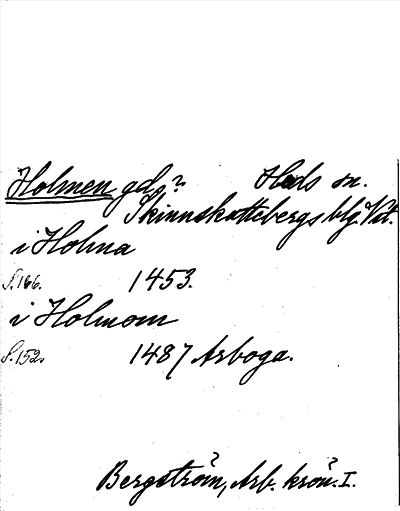 Holmen gd? Heds sn.
Skinnskattebergs blg Vstm.
i Holma
S. 166. 1453.
i Holmom
S. 152. 1487 Arboga.
Bergström, Arb. krön. I.